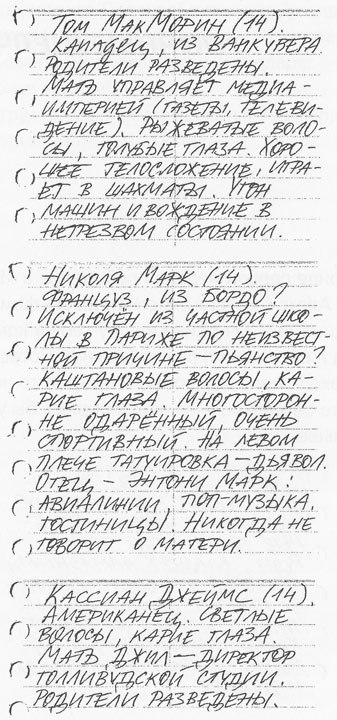 Том МакМорин (14).
Канадец, из Ванкувера
Родители разведены.
Мать управляет медиа-
империей (газеты, телеви-
дение). Рыжеватые воло-
сы, голубые глаза. Хоро-
шее телосложение, игра-
ет в шахматы. Угон
машин и вождение в
нетрезвом состоянии.
Николя Марк (14).
Француз, из Бордо?
Исключён из частной шко-
лы в Париже по неизвест-
ной причине – пьянство?
Каштановые волосы, ка-
рие глаза. Многосторон-
не одарённый, очень
спортивный. На левом
плече татуировка – дьявол.
Отец – Энтони Марк:
авиалинии, поп-музыка,
гостиницы. Никогда не
говорит о матери.
Кассиан Джеймс (14).
Американец. Светлые
волосы, карие глаза.
Мать, Джил – директор
голливудской студии.
Родители разведены.